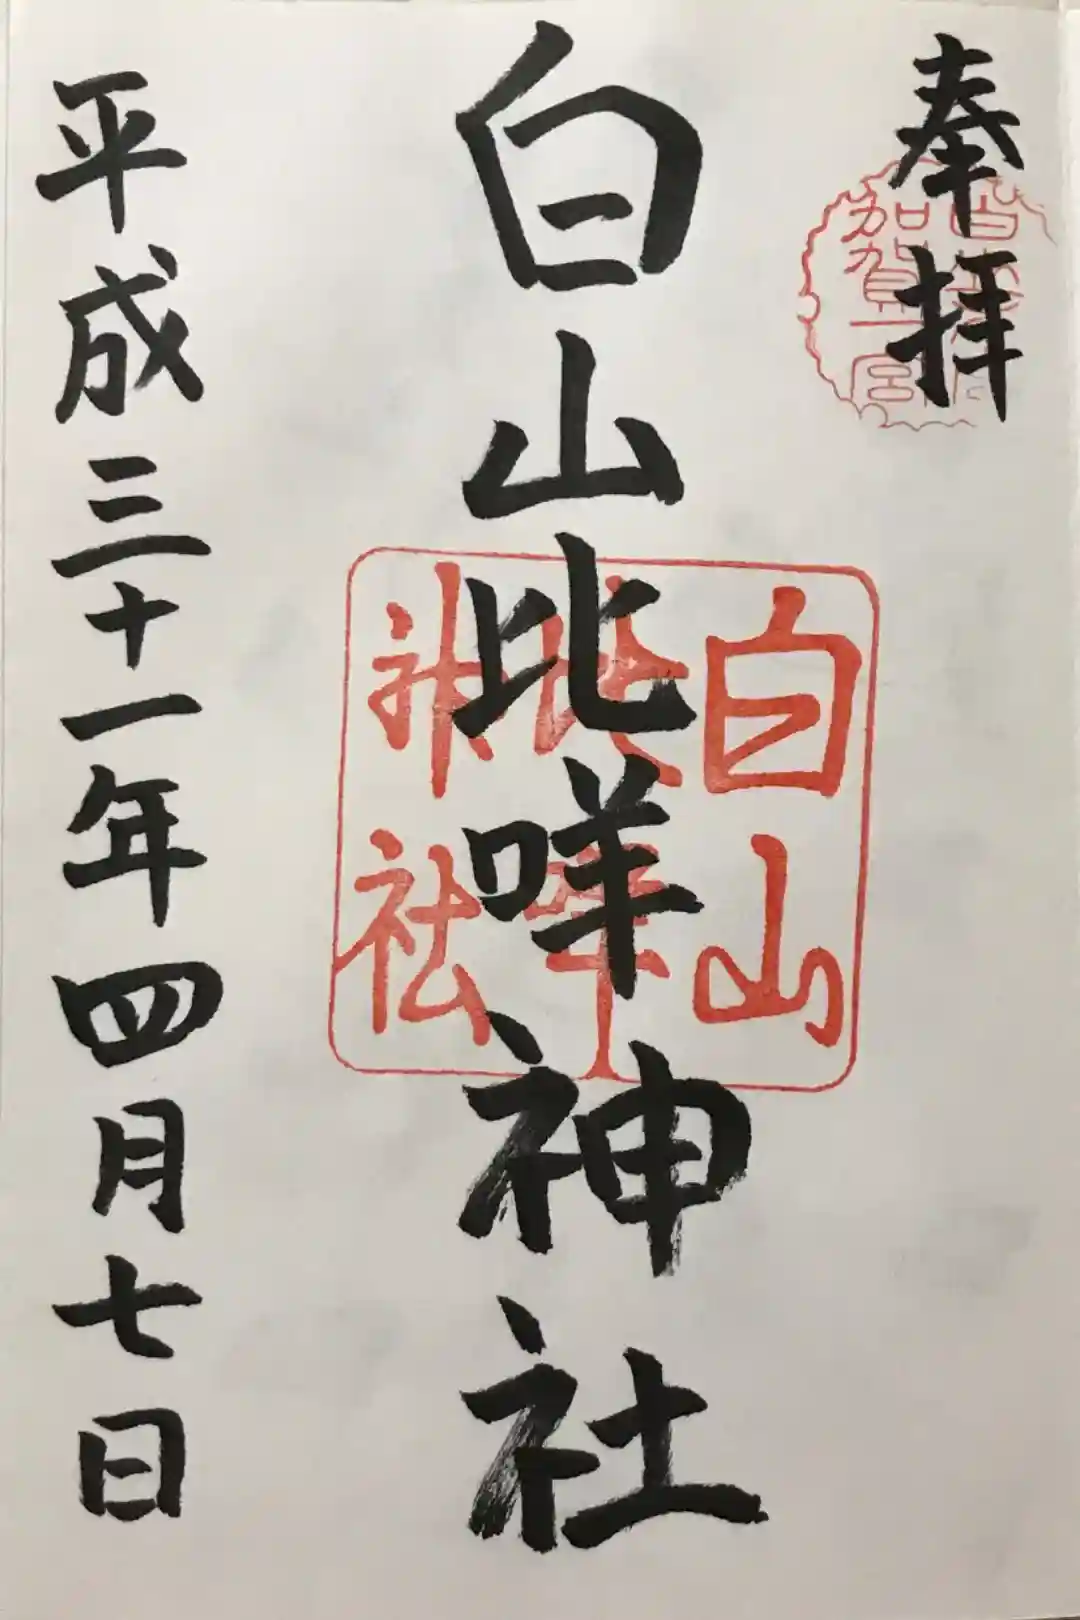 奉拝
加賀一宮
白山比咩神社
白山
比咩
神社
平成三十一年四月七日